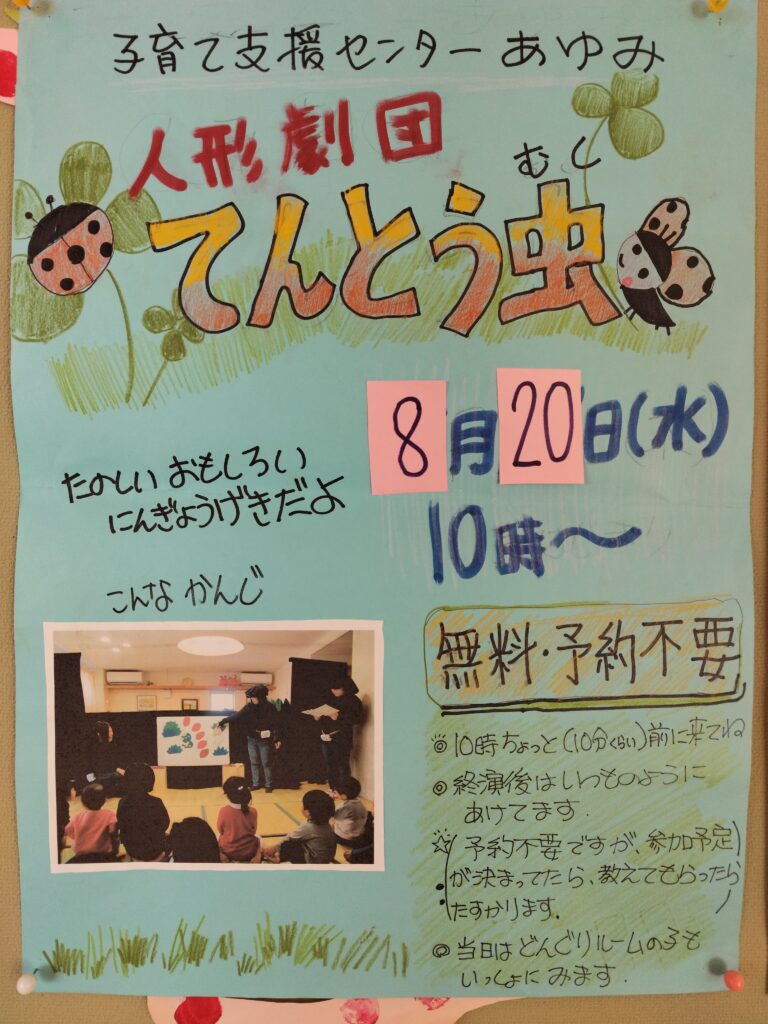 子育て支援センターあゆみ
人形劇団
むし
てんとう虫
8月20日(水)
10時〜
たのしい おもしろい
にんぎょうげきだよ
こんな かんじ
無料・予約不要
◎10時ちょっと(10分くらい)前に来てね
◎終演後はいつものように
あけてます.
☆(予約不要ですが、参加予定
が決まってたら、教えてもらったら
たすかります.)
◎当日はどんぐりルームの子も
いっしょに みます.